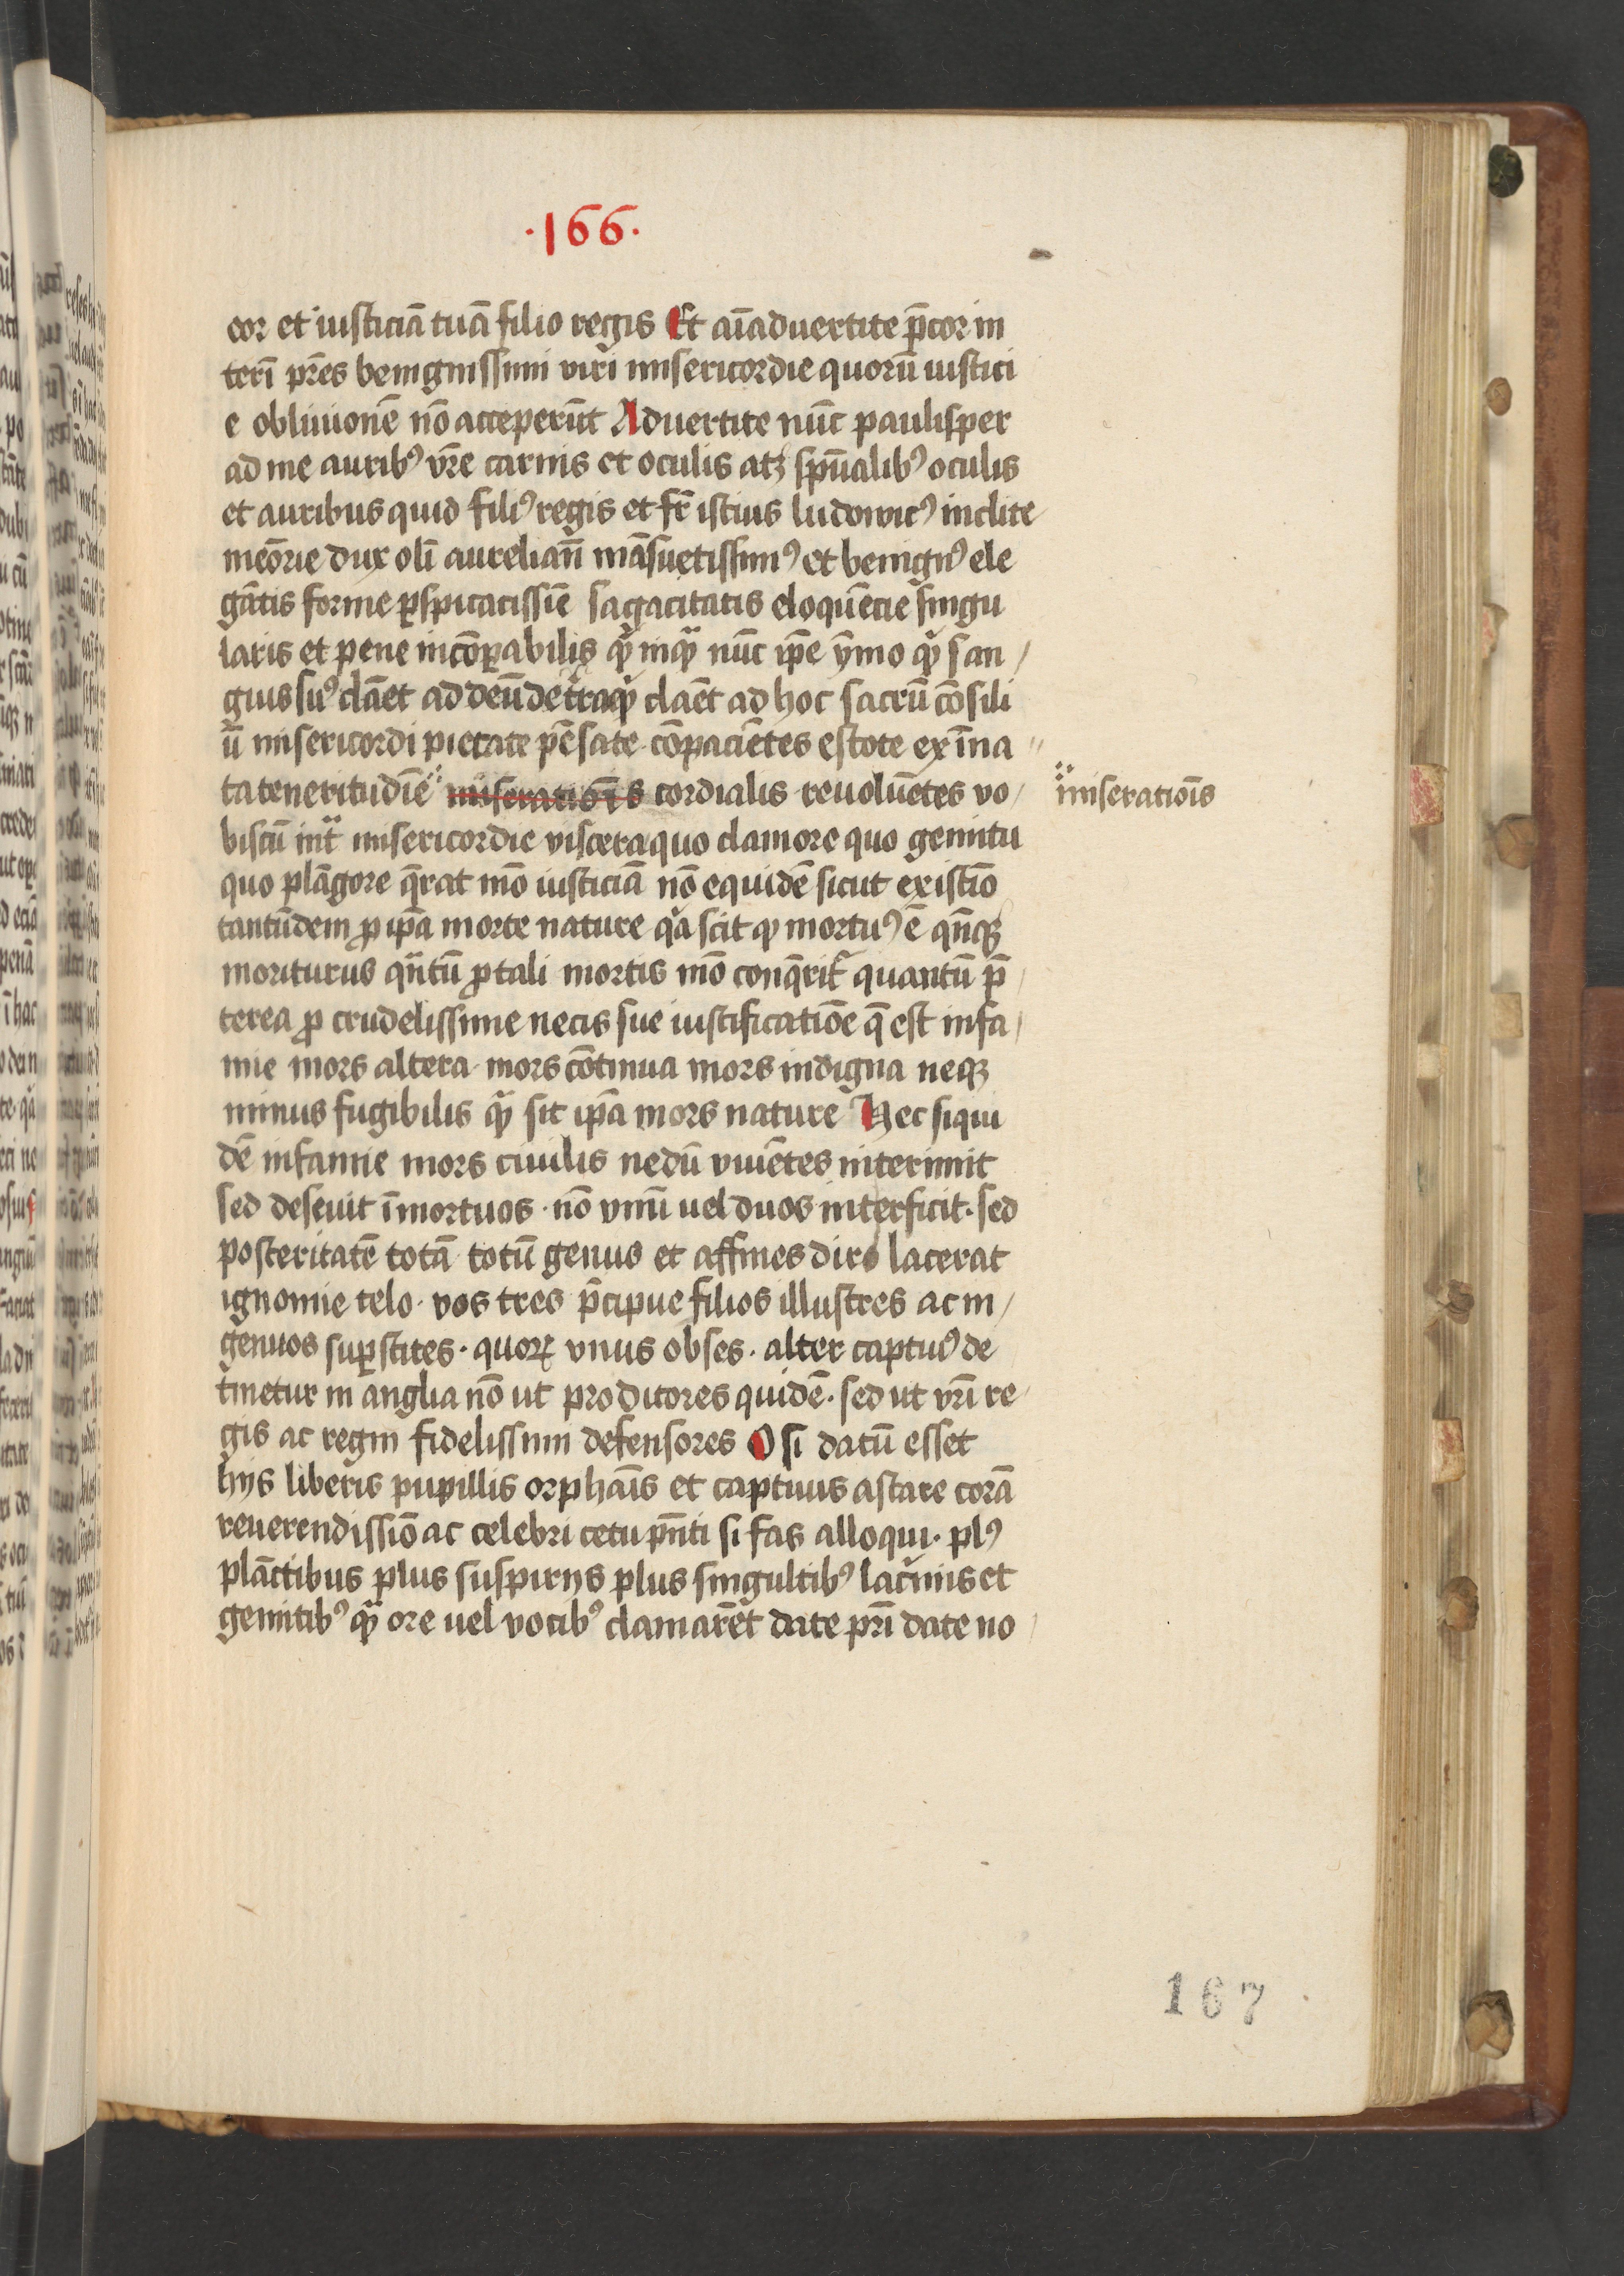 ·166·
cor et iusticiā tuā filio regis Et aīaduertite p̄cor in
terī pr̄es benignissimi viri misericordie quorū iustici
e obliuionē nō acceperūt Aduertite nūc paulisper
ad me auribꝰ vr̄e carnis et oculis atqꝫ spūalibꝰ oculis
et auribus quid filiꝰ regis et fr̄ istius ludowicꝰ inclite
meōrie dux olī aurelian̄ māsuetissimꝰ et benignꝰ ele
gātis forme ꝑspicacissīe sagacitatis eloquēcie singu
laris et pene incōꝑabilis qͣ inqͣ nūc ip̄e ymo qͣ san /
guis suꝰ clāet ad deū de t̄ra qͣ clāet ad hoc sacrū cōsili
ū misericordi pietate pēsate cōpaciētes estote ex īna //
ta teneritudīe miserationīs cordialis reuoluētes vo /
miserationīs
biscū intͣ misericordie viscera quo clamore quo gemitu
quo plāgore q̄rat mō iusticiā nō equidē sicut existīo
tantūdem ꝓ ipā morte nature qͣ scit ꝙ mortuꝰ ē qn̄cqꝫ
moriturus qn̄tū ꝓ tali mortis mō conq̄rit̄ quantū p̄ /
terea ꝓ crudelissime necis sue iustificatiōe q̄ est infa /
mie mors altera mors cōtinua mors indigna neqꝫ
minus fugibilis qͣ sit ipā mors nature Hec siqui
dē infamie mors ciuilis nedū viuētes interimit
sed deseuit ī mortuos · nō vnū uel duos interficit · sed
posteritatē totā totū genus et affines diro lacerat
ignomīe telo · vos tres p̄cipue filios illustres ac in /
genuos suꝑstites · quoꝝ vnus obses · alter captuꝰ de
tinetur in anglia nō ut proditores quidē · sed ut vr̄i re /
gis ac regni fidelissimi defensores O si datū esset
hijs liberis pupillis orphaīs et captiuis astare corā
reuerendissīo ac celebri cetu pn̄ti si fas alloqui · plꝰ
plāctibus plus suspirijs plus singultibꝰ lacͥmis et
gemitibꝰ qͣ ore uel vocibꝰ clamarēt date pr̄i date no /
167